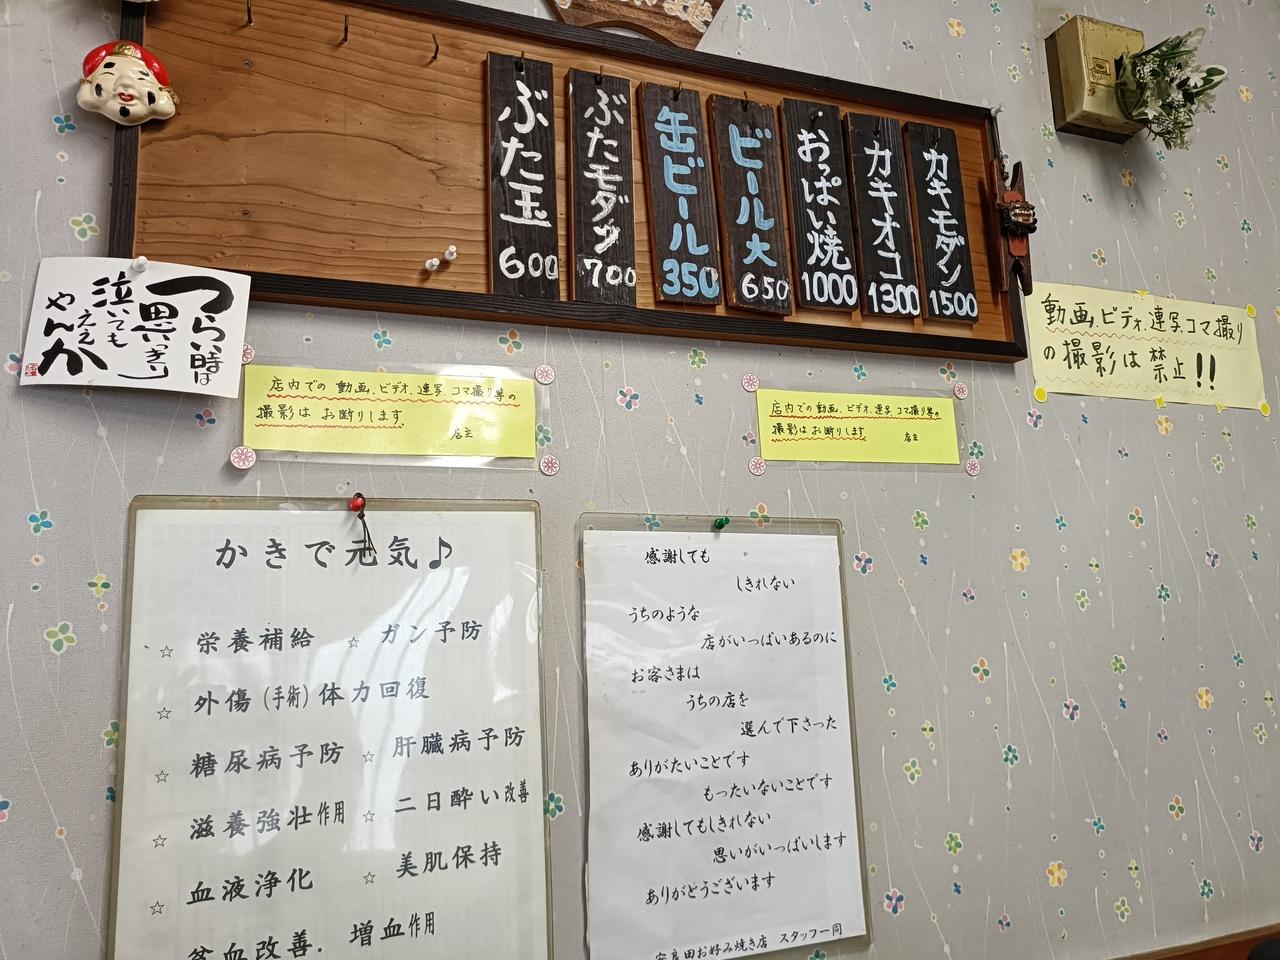 ぶた玉 600
ぶたモダン 700
缶ビール 350
ビール大 650
おっぱい焼 1000
カキオコ 1300
カキモダン 1500
つらい時は
思いっきり
泣いても
ええ
やんか
店内での動画、ビデオ、連写、コマ撮り等の
撮影はお断りします
店主
店内での動画、ビデオ、連写、コマ撮り等の
撮影はお断りします
店主
動画、ビデオ、連写、コマ撮り
の撮影は禁止!!
かきで元気♪
☆ 栄養補給 ☆ ガン予防
☆ 外傷(手術)体力回復
☆ 糖尿病予防 ☆ 肝臓病予防
☆ 滋養強壮作用 ☆ 二日酔い改善
☆ 血液浄化 ☆ 美肌保持
貧血改善. 増血作用
感謝しても
しきれない
うちのような
店がいっぱいあるのに
お客さまは
うちの店を
選んで下さった
ありがたいことです
もったいないことです
感謝してもしきれない
思いがいっぱいします
ありがとうございます
安良田お好み焼き店 スタッフ一同